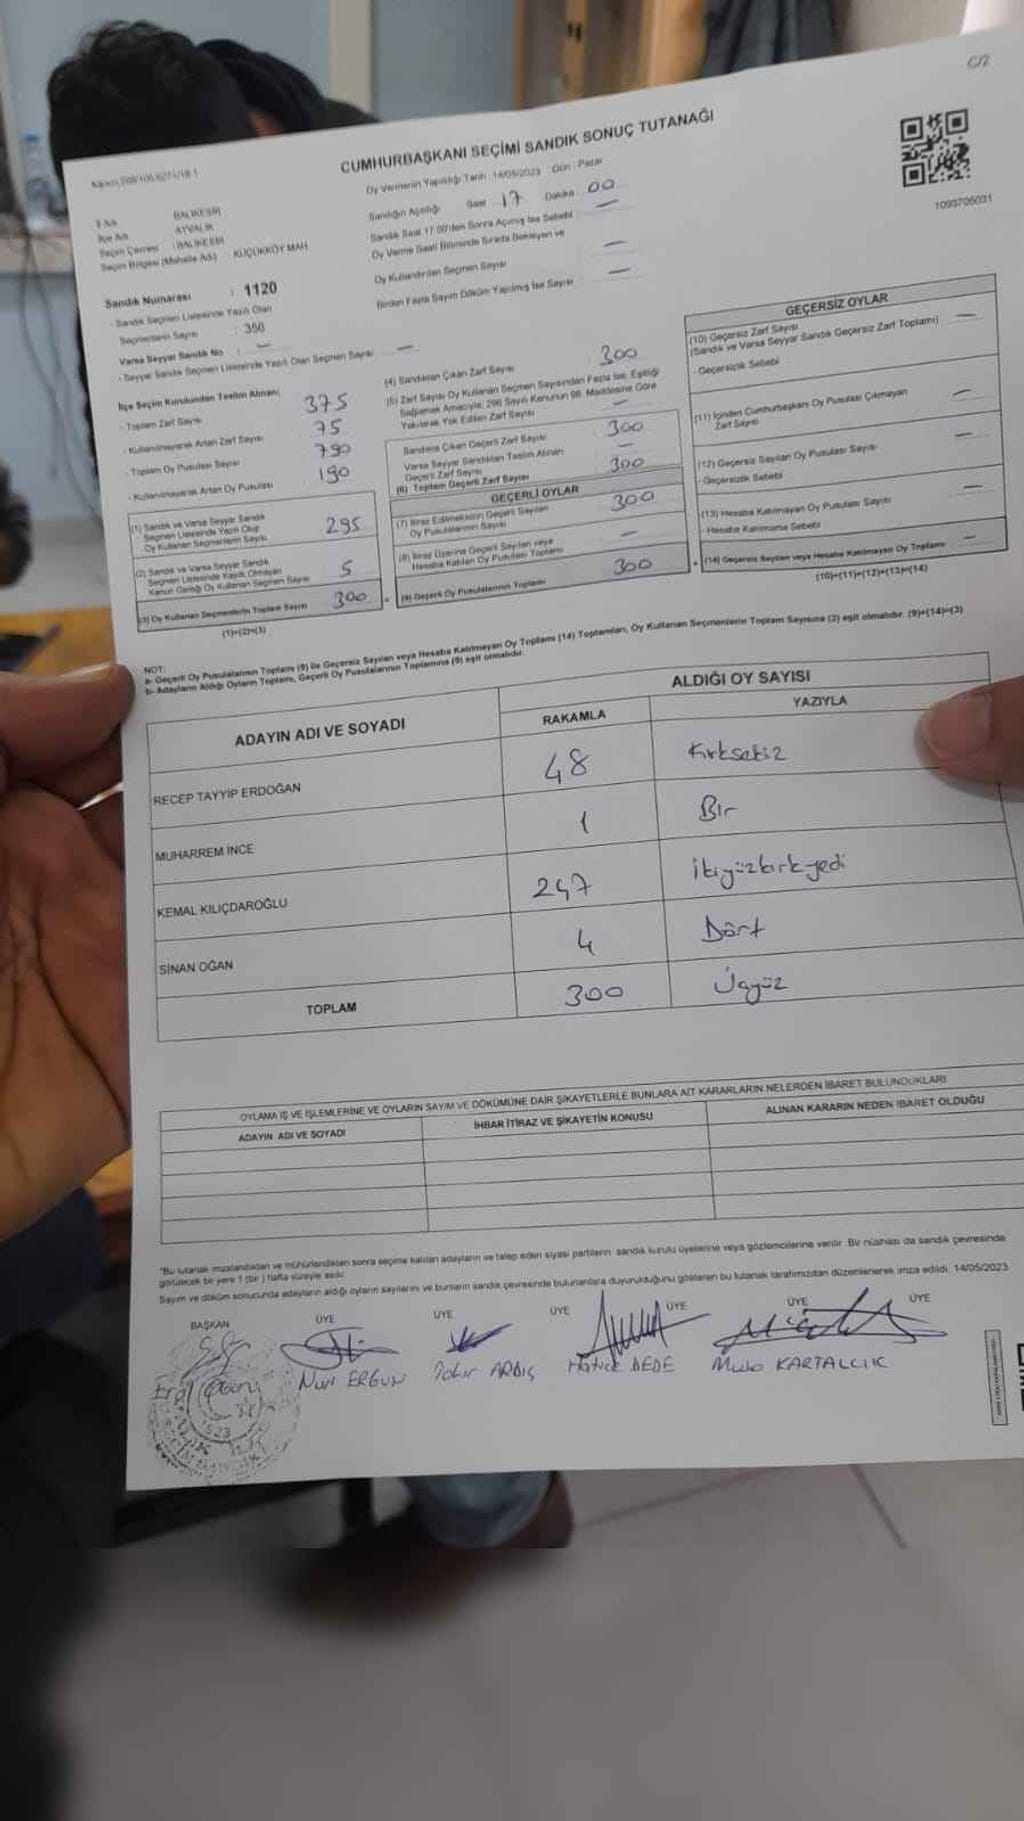 C/2
CUMHURBAŞKANI SEÇİMİ SANDIK SONUÇ TUTANAĞI
Oy Vermenin Yapıldığı Tarih : 14/05/2023 Gün : Pazar
1093705031
İl Adı : BALIKESİR
İlçe Adı : AYVALIK
Seçim Çevresi : BALIKESİR
Seçim Bölgesi (Mahalle Adı) : KÜÇÜKKÖY MAH
Sandık Numarası : 1120
- Sandık Seçmen Listesinde Yazılı Olan
Seçmenlerin Sayısı : 350
Varsa Seyyar Sandık No : —
- Seyyar Sandık Seçmen Listesinde Yazılı Olan Seçmen Sayısı —
Sandığın Açıldığı Saat 17 Dakika 00
Sandık Saat 17.00'den Sonra Açılmış İse Sebebi —
Oy Verme Saati Bitiminde Sırada Bekleyen ve
Oy Kullandırılan Seçmen Sayısı —
Birden Fazla Sayım Döküm Yapılmış İse Sayısı —
İlçe Seçim Kurulundan Teslim Alınan;
- Toplam Zarf Sayısı 375
- Kullanılmayarak Artan Zarf Sayısı 75
- Toplam Oy Pusulası Sayısı
- Kullanılmayarak Artan Oy Pusulası 190
(1) Sandık ve Varsa Seyyar Sandık
Seçmen Listesinde Yazılı Olup
Oy Kullanan Seçmenlerin Sayısı 295
(2) Sandık ve Varsa Seyyar Sandık
Seçmen Listesinde Kayıtlı Olmayan
Kanun Gereği Oy Kullanan Seçmen Sayısı 5
(3) Oy Kullanan Seçmenlerin Toplam Sayısı 300
(1)+(2)=(3)
(4) Sandıktan Çıkan Zarf Sayısı 300
(5) Zarf Sayısı Oy Kullanan Seçmen Sayısından Fazla İse, Eşitliği
Sağlamak Amacıyla, 298 Sayılı Kanunun 98. Maddesine Göre
Yakılarak Yok Edilen Zarf Sayısı —
Sandıkta Çıkan Geçerli Zarf Sayısı 300
Varsa Seyyar Sandıktan Teslim Alınan
Geçerli Zarf Sayısı —
(6) Toplam Geçerli Zarf Sayısı 300
GEÇERLİ OYLAR
(7) İtiraz Edilmeksizin Geçerli Sayılan
Oy Pusulalarının Sayısı 300
(8) İtiraz Üzerine Geçerli Sayılan veya
Hesaba Katılan Oy Pusulası Toplamı —
(9) Geçerli Oy Pusulalarının Toplamı 300
GEÇERSİZ OYLAR
(10) Geçersiz Zarf Sayısı
(Sandık ve Varsa Seyyar Sandık Geçersiz Zarf Toplamı) —
- Geçersizlik Sebebi
(11) İçinden Cumhurbaşkanı Oy Pusulası Çıkmayan
Zarf Sayısı —
(12) Geçersiz Sayılan Oy Pusulası Sayısı —
- Geçersizlik Sebebi
(13) Hesaba Katılmayan Oy Pusulası Sayısı —
- Hesaba Katılmama Sebebi
(14) Geçersiz Sayılan veya Hesaba Katılmayan Oy Toplamı —
(10)+(11)+(12)+(13)=(14)
NOT:
a- Geçerli Oy Pusulalarının Toplamı (9) ile Geçersiz Sayılan veya Hesaba Katılmayan Oy Toplamı (14) Toplamları, Oy Kullanan Seçmenlerin Toplam Sayısına (3) eşit olmalıdır. (9)+(14)=(3)
b- Adayların Aldığı Oyların Toplamı, Geçerli Oy Pusulalarının Toplamına (9) eşit olmalıdır.
ADAYIN ADI VE SOYADI
ALDIĞI OY SAYISI
RAKAMLA YAZIYLA
RECEP TAYYİP ERDOĞAN 48 Kırksekiz
MUHARREM İNCE 1 Bir
KEMAL KILIÇDAROĞLU 247 İkiyüzkırkyedi
SİNAN OĞAN 4 Dört
TOPLAM 300 Üçyüz
OYLAMA İŞ VE İŞLEMLERİNE VE OYLARIN SAYIM VE DÖKÜMÜNE DAİR ŞİKAYETLERLE BUNLARA AİT KARARLARIN NELERDEN İBARET BULUNDUKLARI
ADAYIN ADI VE SOYADI
İHBAR İTİRAZ VE ŞİKAYETİN KONUSU
ALINAN KARARIN NEDEN İBARET OLDUĞU
"Bu tutanak imzalandıktan ve mühürlendikten sonra seçime katılan adayların ve talep eden siyasi partilerin sandık kurulu üyelerine veya gözlemcilerine verilir. Bir nüshası da sandık çevresinde
görülecek bir yere 1 (bir) hafta süreyle asılır.
Sayım ve döküm sonucunda adayların aldığı oyların sayılarını ve bunların sandık çevresinde bulunanlara duyurulduğunu gösteren bu tutanak tarafımızdan düzenlenerek imza edildi. 14/05/2023
BAŞKAN ÜYE ÜYE ÜYE ÜYE ÜYE ÜYE
Nuri ERGUN
ARDIÇ
Hatice DEDE
KARTALCIK